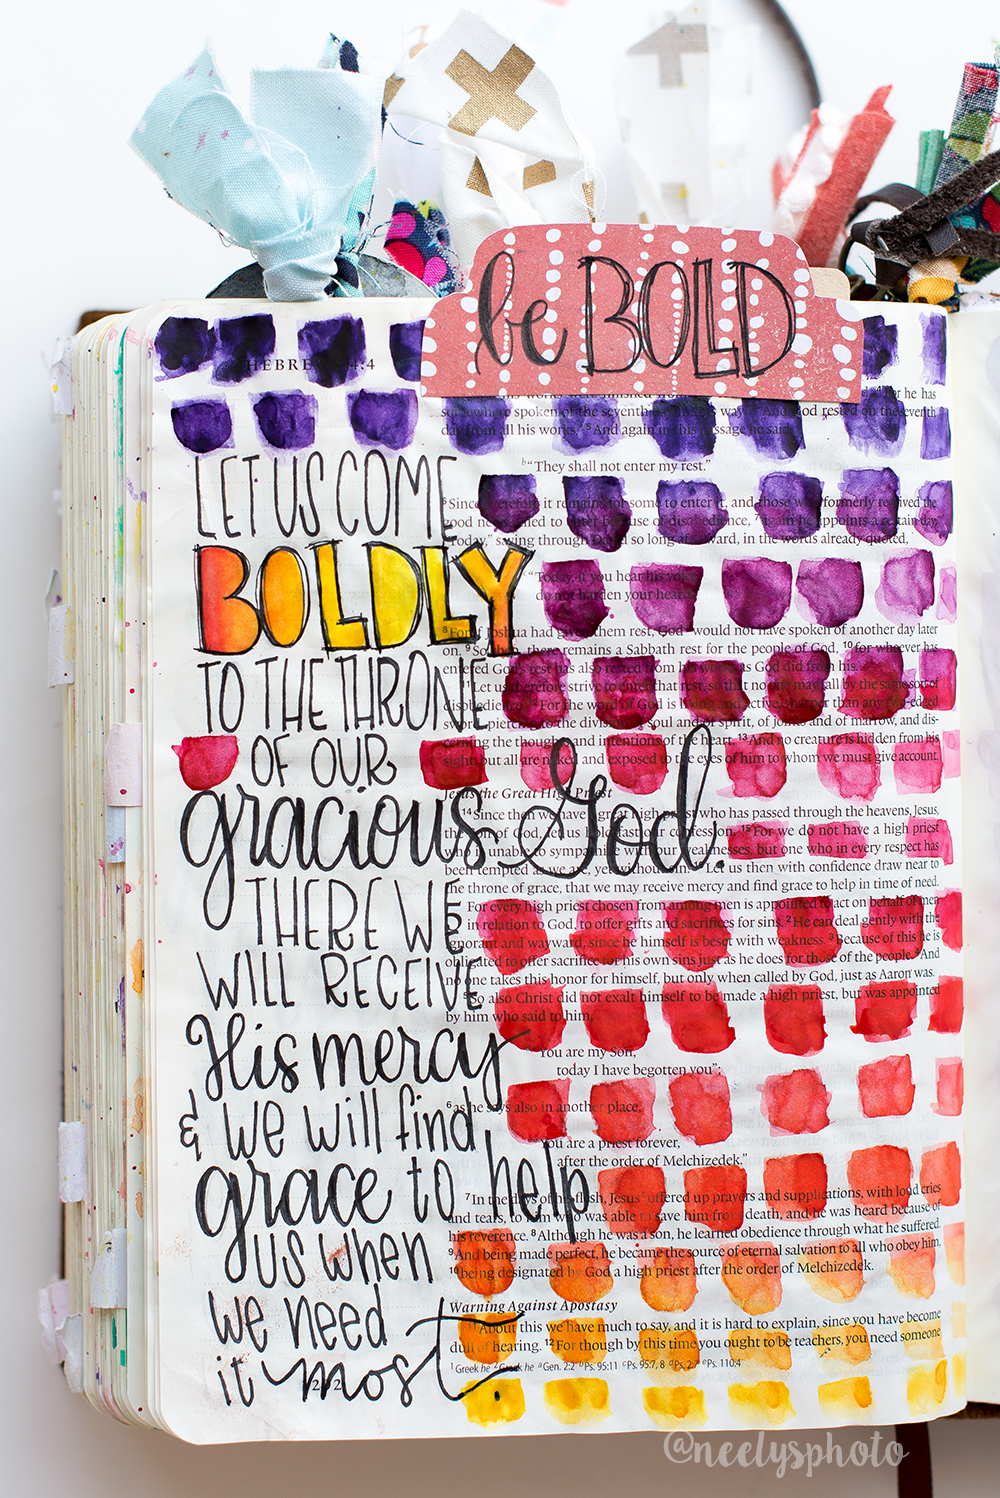 be BOLD
HEBREWS 4:4
LET US COME
BOLDLY
TO THE THRONE
OF OUR
gracious God.
THERE WE
WILL RECEIVE
His mercy
& we will find
grace to help
us when
we need
it most.
For he has
somewhere spoken of the seventh day way: “And God rested on the seventh
day from all his works.” 5And again in this passage he said,
b“They shall not enter my rest.”
6Since therefore it remains for some to enter it, and those who formerly received the
good news failed to enter because of disobedience, 7again he appoints a certain day,
“Today,” saying through David so long afterward, in the words already quoted,
“Today, if you hear his voice,
do not harden your hearts.”
8For if Joshua had given them rest, God would not have spoken of another day later
on. 9So then, there remains a Sabbath rest for the people of God, 10for whoever has
entered God’s rest has also rested from his works as God did from his.
11Let us therefore strive to enter that rest, so that no one may fall by the same sort of
disobedience. 12For the word of God is living and active, sharper than any two-edged
sword, piercing to the division of soul and of spirit, of joints and of marrow, and dis-
cerning the thoughts and intentions of the heart. 13And no creature is hidden from his
sight, but all are naked and exposed to the eyes of him to whom we must give account.
Jesus the Great High Priest
14Since then we have a great high priest who has passed through the heavens, Jesus,
the Son of God, let us hold fast our confession. 15For we do not have a high priest
who is unable to sympathize with our weaknesses, but one who in every respect has
been tempted as we are, yet without sin. 16Let us then with confidence draw near to
the throne of grace, that we may receive mercy and find grace to help in time of need.
5 For every high priest chosen from among men is appointed to act on behalf of men
in relation to God, to offer gifts and sacrifices for sins. 2He can deal gently with the
ignorant and wayward, since he himself is beset with weakness. 3Because of this he is
obligated to offer sacrifice for his own sins just as he does for those of the people. 4And
no one takes this honor for himself, but only when called by God, just as Aaron was.
5So also Christ did not exalt himself to be made a high priest, but was appointed
by him who said to him,
“You are my Son,
today I have begotten you”;
6as he says also in another place,
“You are a priest forever,
after the order of Melchizedek.”
7In the days of his flesh, Jesus offered up prayers and supplications, with loud cries
and tears, to him who was able to save him from death, and he was heard because of
his reverence. 8Although he was a son, he learned obedience through what he suffered.
9And being made perfect, he became the source of eternal salvation to all who obey him,
10being designated by God a high priest after the order of Melchizedek.
Warning Against Apostasy
11About this we have much to say, and it is hard to explain, since you have become
dull of hearing. 12For though by this time you ought to be teachers, you need someone
1 Greek he 2 Greek he a Gen. 2:2 b Ps. 95:11 c Ps. 95:7, 8 d Ps. 2:7 e Ps. 110:4
@neelysphoto